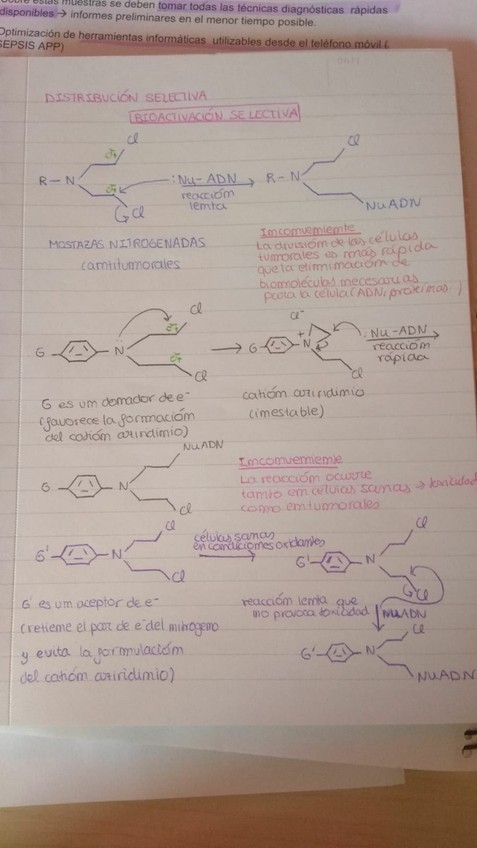 Sobre estas muestras se deben tomar todas las técnicas diagnósticas rápidas
disponibles → informes preliminares en el menor tiempo posible.
Optimización de herramientas informáticas utilizables desde el teléfono móvil (
SEPSIS APP)
DISTRIBUCIÓN SELECTIVA
BIOACTIVACIÓN SELECTIVA
Cl
δ+
R-N
δ+
Cl
:Nu-ADN
reacción
lenta
R-N
Cl
NuADN
MOSTAZAS NITROGENADAS
(antitumorales
Inconveniente
La división de las células
tumorales es más rápida
que la eliminación de
biomoléculas necesarias
para la célula (ADN, proteínas)
Cl
δ+
G
N
δ+
Cl
Cl-
G
+
N
Cl
:Nu-ADN
reacción
rápida
G es un donador de e-
(favorece la formación
del catión aziridinio)
catión aziridinio
(inestable)
NuADN
G
N
Cl
Inconveniente
La reacción ocurre
tanto en células sanas → toxicidad
como en tumorales
Cl
G'
N
Cl
células sanas
en condiciones oxidantes
Cl
G'
N
Cl
G' es un aceptor de e-
(retiene el par de e- del nitrógeno
y evita la formulación
del catión aziridinio)
reacción lenta que
no provoca toxicidad
NuADN
Cl
G'
N
NuADN